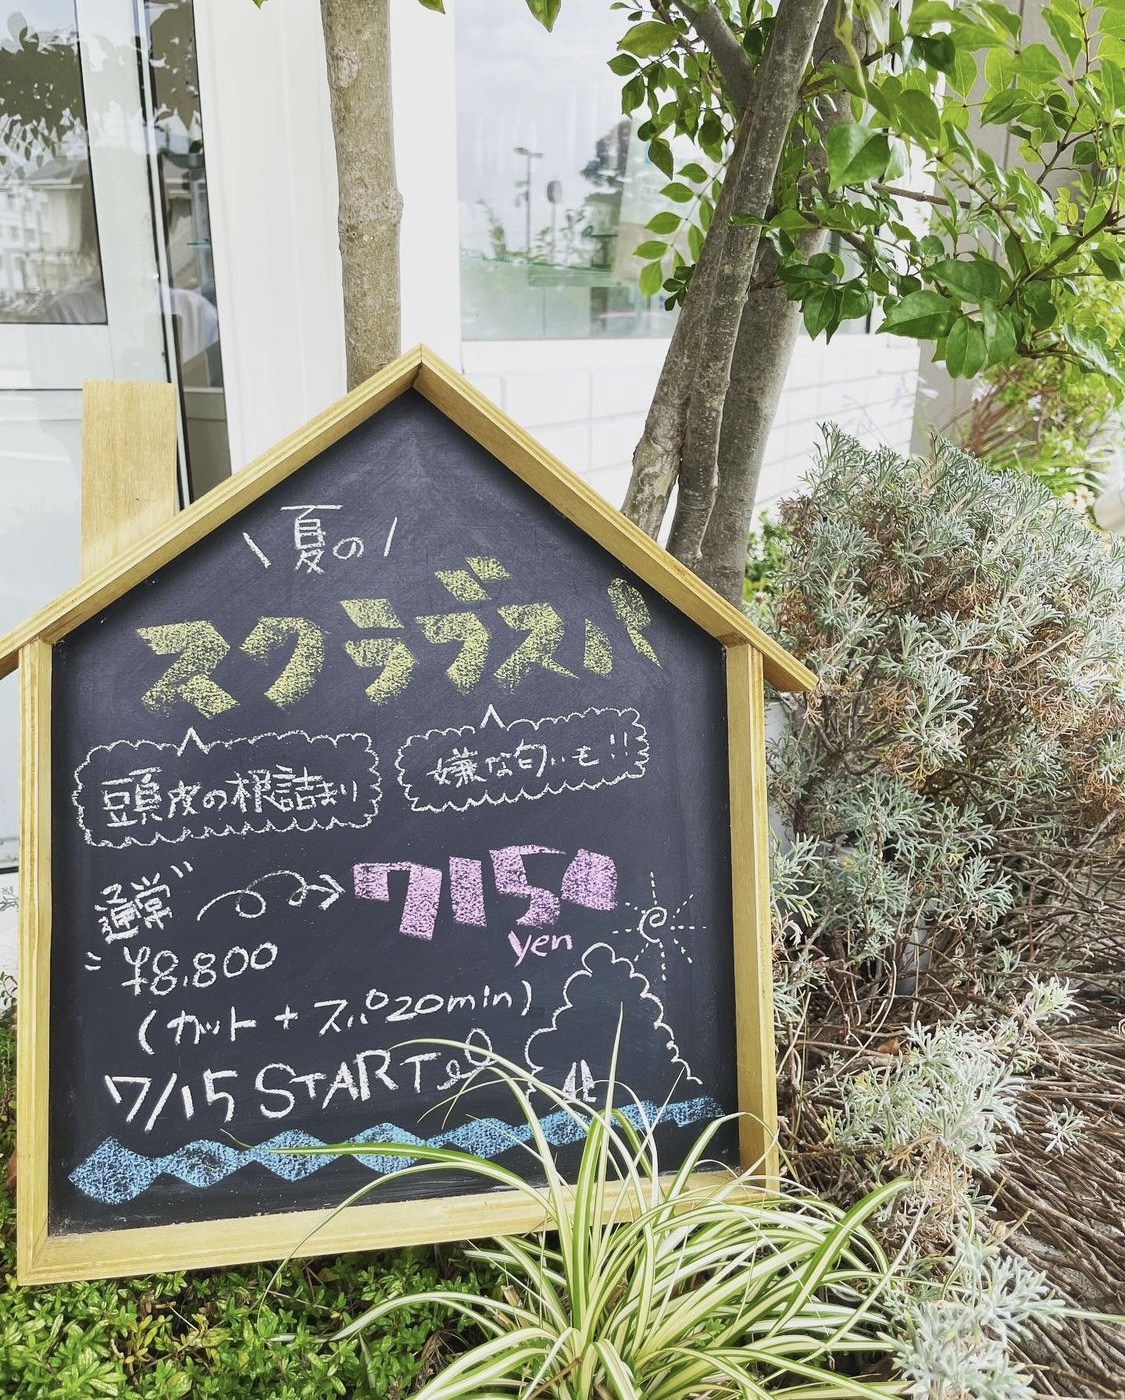 \ 夏の /
スクラブスパ
頭皮の根詰まり
嫌な匂いも!!
通常
¥8,800
7150
yen
(カット + スパ20min)
7/15 START